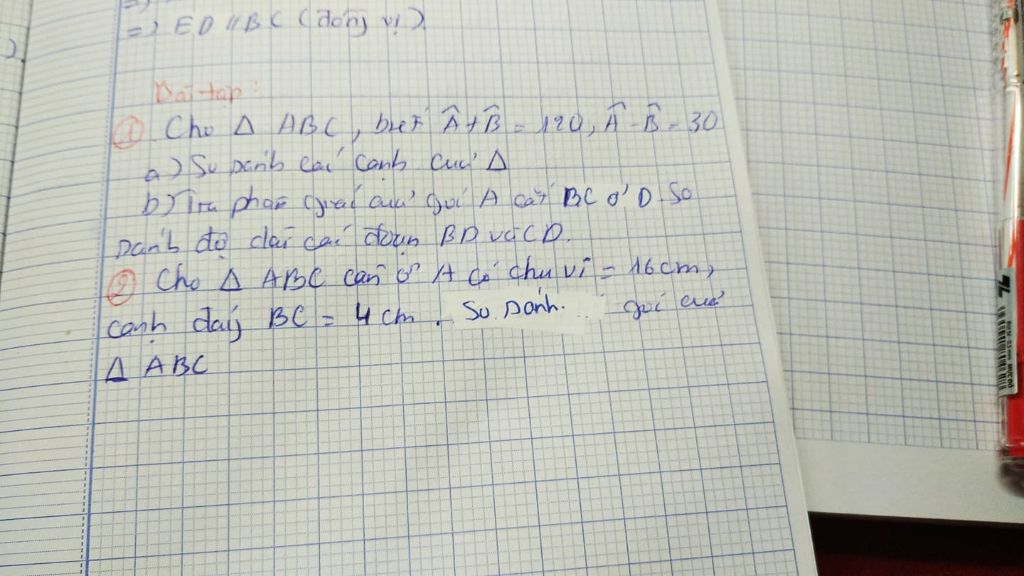 => ED // BC (đồng vị)
Bài tập:
① Cho Δ ABC, biết Â + B̂ = 120, Â - B̂ = 30
a) So sánh các cạnh của Δ
b) Tia phân giác của góc A cắt BC ở D. So
sánh độ dài các đoạn BD và CD.
② Cho Δ ABC cân ở A có chu vi = 16cm,
cạnh đáy BC = 4 cm. So sánh. góc của
Δ ABC